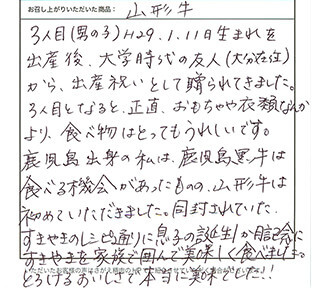 お召し上がりいただいた商品： 山形牛
3人目(男の子)H29.1.11日生まれを
出産後、大学時代の友人(大分在住)
から、出産祝いとして贈られてきました。
3人目となると、正直、おもちゃや衣類なんか
より、食べ物はとってもうれしいです。
鹿児島出身の私は、鹿児島黒牛は
食べる機会があったものの、山形牛は
初めていただきました。同封されていた
すきやきのレシピ通りに息子の誕生1か月記念に
すきやきを家族で囲んで美味しく食べました。
とろけるおいしさで本当に美味でした!!